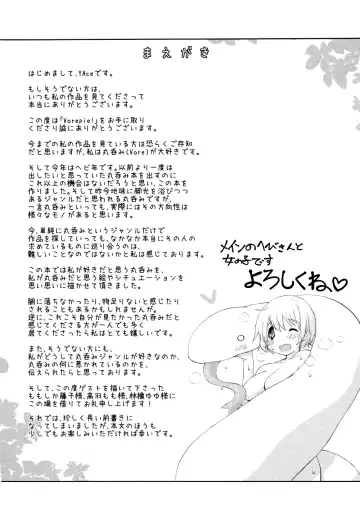 まえがき
はじめまして、YAceです。
もしそうでない方は、
いつも私の作品を見てくださって
本当にありがとうございます。
この度は「Vorepie!」をお手に取り
くださり誠にありがとうございます。
今までの私の作品を見ている方は恐らくご存知
だと思いますが、私は丸呑み(Vore)が大好きです。
そして今年はヘビ年です。以前より一度は
出したいと思っていた丸呑み本を出すのに
これ以上の機会はないだろうと思い、この本を
作りました。そして昨今地味に脚光を浴びつつ
あるジャンルだと思われる丸呑みですが、
一言丸呑みといっても、実際にはその方向性は
様々なモノがあると思います。
今、単純に丸呑みというジャンルだけで
作品を探していっても、なかなか本当にその人の
求めているものに巡り合うのは、
難しいことなのではないかと私は感じております。
この本では私が好きだと思う丸呑みを、
私が丸呑みだと思う絵やシチュエーションを
思いに思いに描かせて頂きました。
腑に落ちなかったり、物足りないと感じたり
されることもあるかもしれませんが、
逆に、これこそ自分が見たかった丸呑みだと
感じてくださる方が一人でも多く
居てくださったら私はとても嬉しいです。
また、そうでない方にも、
私がどうして丸呑みジャンルが好きなのか、
丸呑みの何に惹かれているのかを、
伝えられたらと思っております。
そして、この度ゲストを描いて下さった
ももしか藤子様、高羽もも様、林檎ゆゆ様に
この場を借りてお礼申し上げます!
それでは、珍しく長い前書きに
なってしまいましたが、本文のほうも
少しでもお楽しみいただければ幸いです。
メインのへびさんと
女の子です
よろしくね、♡